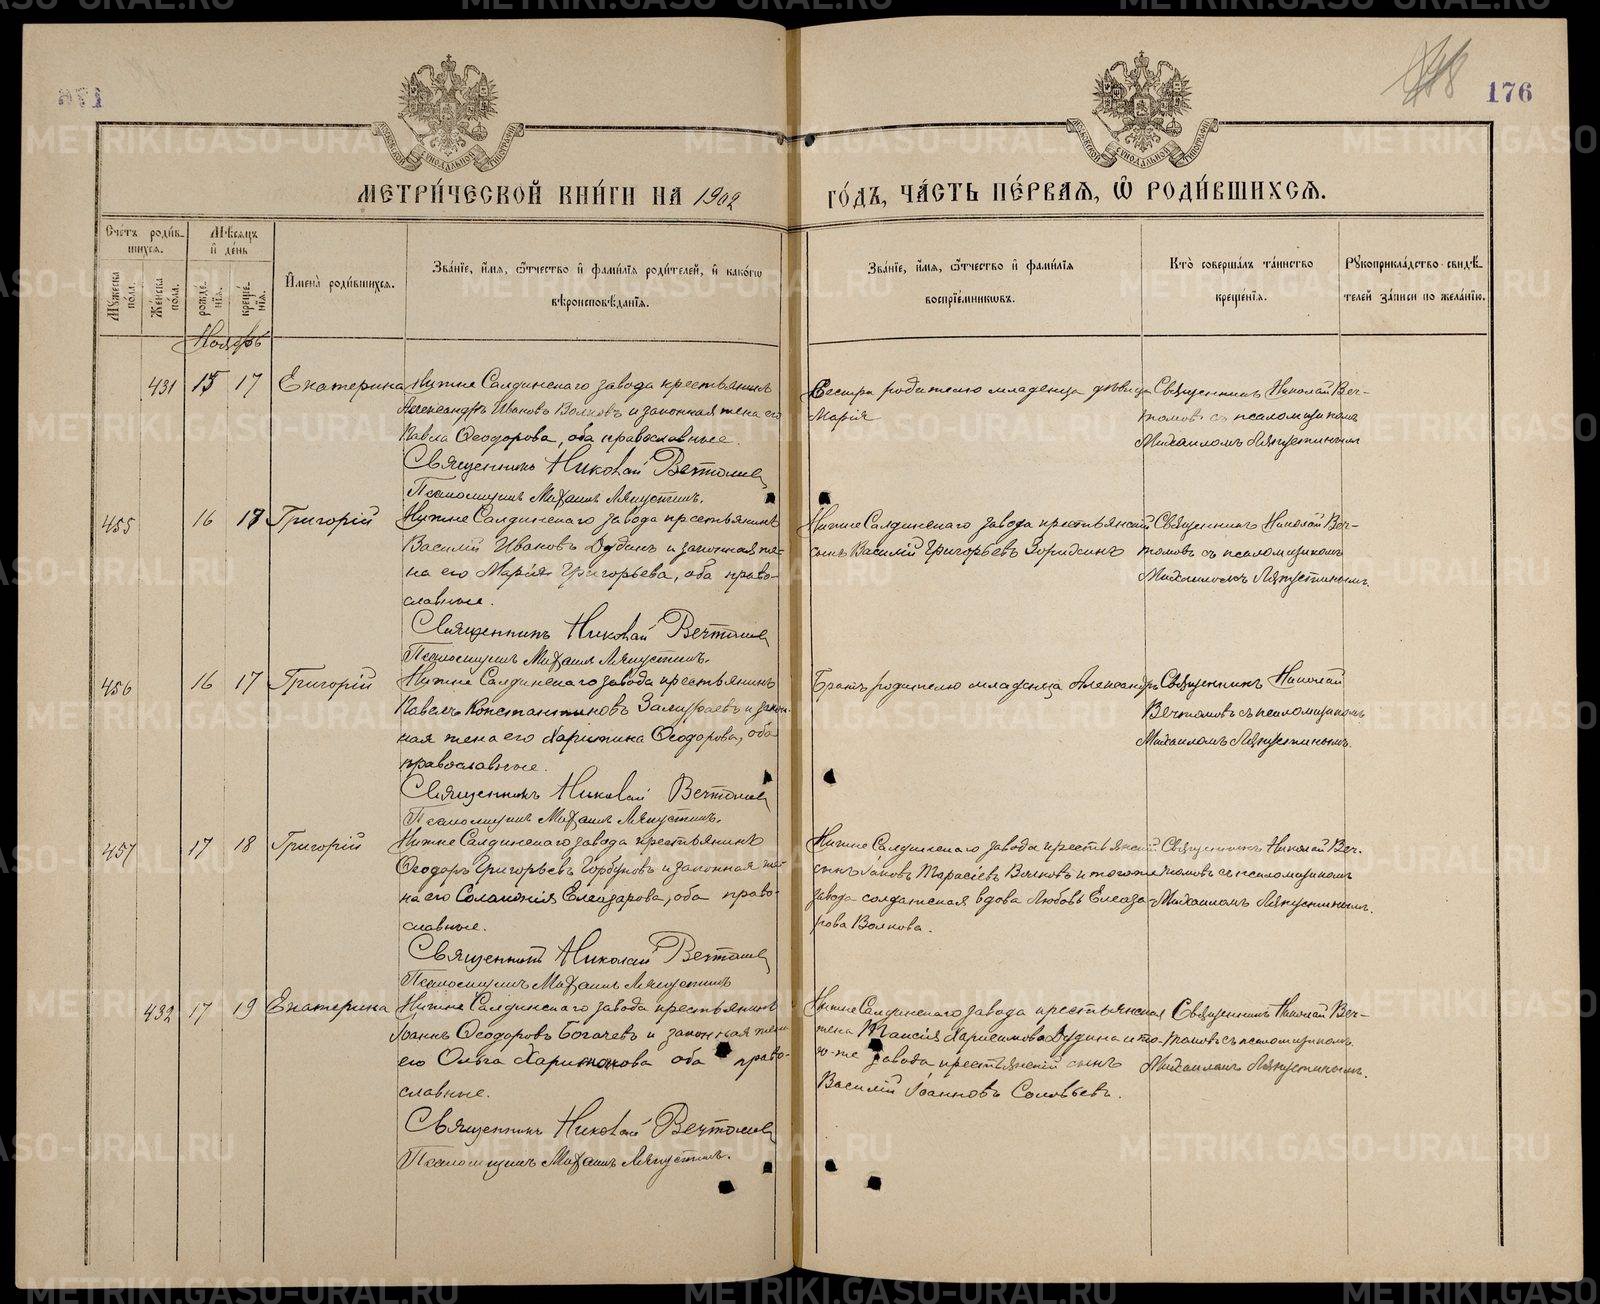 176
МЕТРИ́ЧЕСКОЙ КНИ́ГИ НА 1902 ГО́ДЪ, ЧА́СТЬ ПЕ́РВАЯ, Ѡ РОДИ́ВШИХСЯ.
Сче́тъ роди́в-
шихся.
Мѣ́сяцъ
и҆ де́нь
Мꙋ́жеска
по́ла.
Же́нска
по́ла.
рожде́-
нїѧ.
креще́-
нїѧ.
И҆мена̀ роди́вшихся.
Зва́нїе, и҆́мѧ, ѻ҆́тчество и҆ фами́лїѧ роди́телей, и҆ како́гѡ
вѣроисповѣ́данїѧ.
Зва́нїе, и҆́мѧ, ѻ҆́тчество и҆ фами́лїѧ
воспрїе́мникѡвъ.
Кто̀ соверша́лъ та́инство
креще́нїѧ.
Рꙋкоприкла́дство свидѣ́-
телей за́писи по жела́нїю.
Ноябрь
431 15 17 Екатерина
Нижне Салдинскаго завода крестьянинъ
Александръ Ивановъ Волковъ и законная жена его
Павла Ѳеодорова, оба православные.
Священникъ Николай Вечтомов
Псаломщикъ Михаилъ Ляпустинъ.
Сестра родителю младенца дѣвица
Марія
Священникъ Николай Веч-
томовъ съ псаломщикомъ
Михаиломъ Ляпустинымъ
455 16 17 Григорій
Нижне Салдинскаго завода крестьянинъ
Василій Ивановъ Дудинъ и законная же-
на его Марія Григорьева, оба право-
славные.
Священникъ Николай Вечтомов
Псаломщикъ Михаилъ Ляпустинъ.
Нижне Салдинскаго завода крестьянскій
сынъ Василій Григорьевъ Зоридинъ
Священникъ Николай Веч-
томовъ съ псаломщикомъ
Михаиломъ Ляпустинымъ.
456 16 17 Григорій
Нижне Салдинскаго завода крестьянинъ
Павелъ Константиновъ Замураевъ и закон-
ная жена его Харитина Ѳеодорова, оба
православные.
Священникъ Николай Вечтомов
Псаломщикъ Михаилъ Ляпустинъ.
Братъ родителю младенца Александръ
Священникъ Николай
Вечтомовъ съ псаломщикомъ
Михаиломъ Ляпустинымъ.
457 17 18 Григорій
Нижне Салдинскаго завода крестьянинъ
Ѳеодоръ Григорьевъ Горбуновъ и законная же-
на его Соломонія Елеазарова, оба право-
славные.
Священникъ Николай Вечтомов
Псаломщикъ Михаилъ Ляпустинъ
Нижне Салдинскаго завода крестьянскій
сынъ Іаковъ Тарасіевъ Волковъ и того же
завода солдатская вдова Любовь Елеаза-
рова Волкова.
Священникъ Николай Веч-
томовъ съ псаломщикомъ
Михаиломъ Ляпустинымъ.
432 17 19 Екатерина
Нижне Салдинскаго завода крестьянинъ
Іоаннъ Ѳеодоровъ Богачевъ и законная жена
его Ольга Харитонова оба право-
славные.
Священникъ Николай Вечтомов
Псаломщикъ Михаилъ Ляпустинъ.
Нижне Салдинскаго завода крестьянская
жена Таисія Харисимова Дудина и то-
го-же завода крестьянскій сынъ
Василій Іоанновъ Соловьевъ.
Священникъ Николай Веч-
томовъ съ псаломщикомъ
Михаиломъ Ляпустинымъ.
METRIKI.GASO-URAL.RU